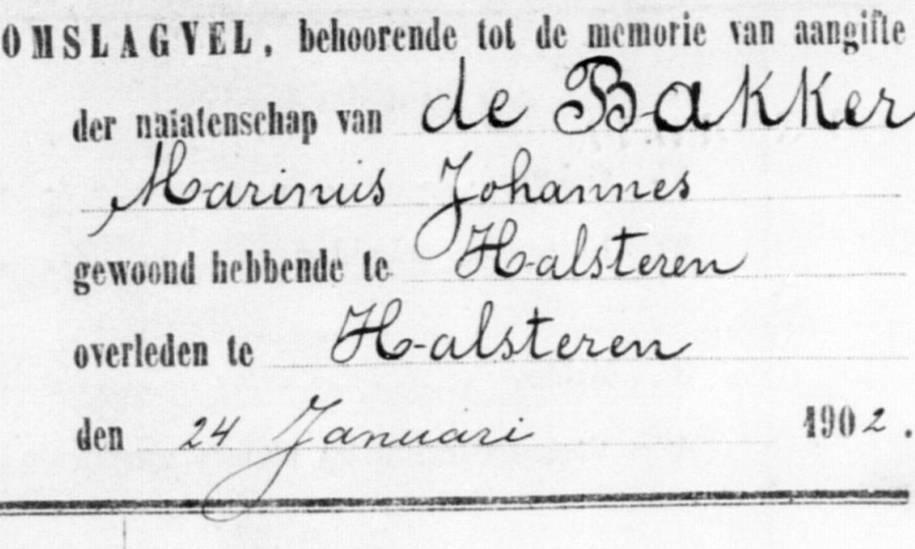 OMSLAGVEL, behoorende tot de memorie van aangifte
der nalatenschap van de Bakker
Marinus Johannes
gewoond hebbende te Halsteren
overleden te Halsteren
den 24 Januari 1902.